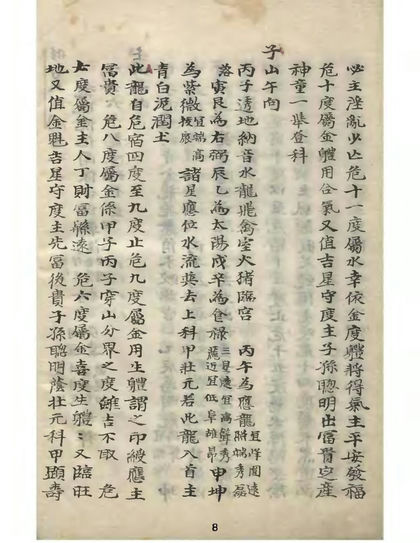 必主淫亂少亡危十一度屬水幸依金度軆將得氣主平安發福
危十度屬金軆用合氣又值吉星守度主子孫聰明出富貴定產
神童一舉登科
子山午向
丙子透地納音水龍飛禽室火猪臨宮 丙午為應龍宜峰圍遠將端秀磊
落寅艮為右弼辰乙為太陽戌辛為食祿三是遠宜高鮮秀近宜低阜雄昴申坤
為紫微宜端高諸星應位水流巽去上科甲壯元若此龍入首主
青白泥潤土
此龍自危宿四度至九度止危九度屬金用生軆謂之印綬應主
富貴 危八度屬金係甲子丙子穿山分界之度雖吉不取 危
七度屬金主人丁財富綿遠 危六度屬金喜度生軆:又臨旺
地又值金魁吉星守度主先富後貴子孫聰明蔭壯元科甲顕壽
8